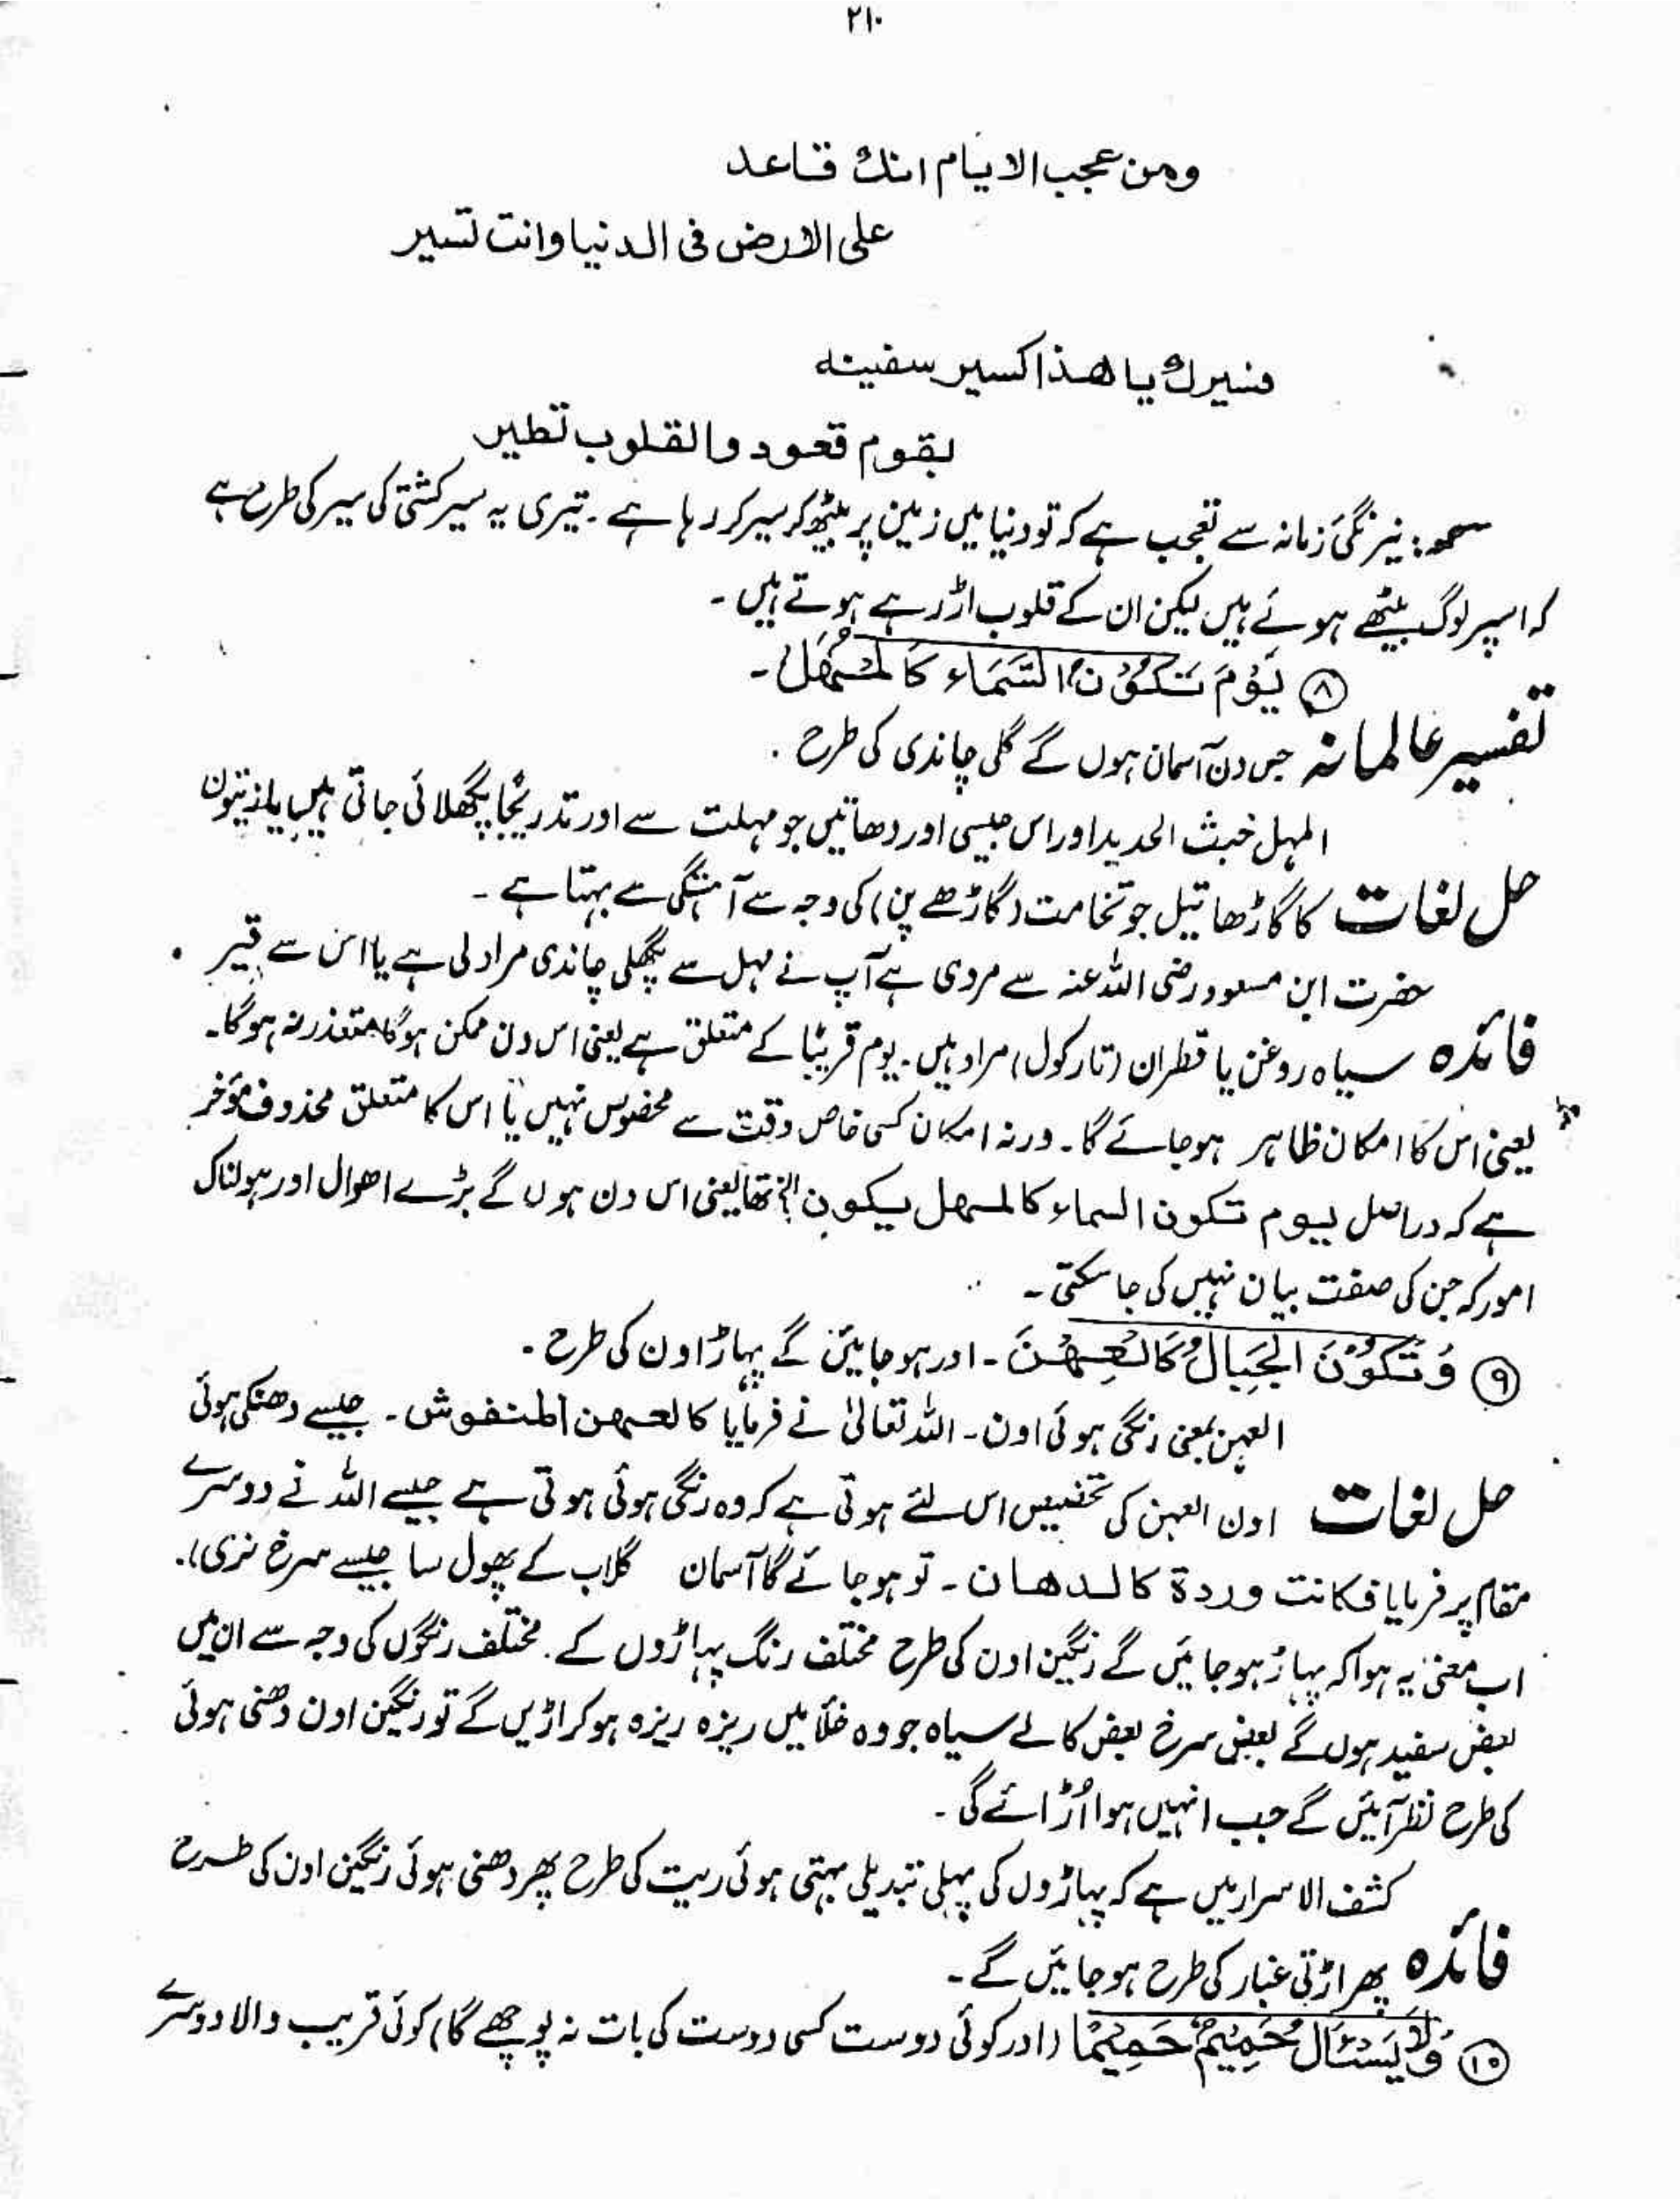 ۲۱۰
ومن عجب الایام انك قاعد
علی الارض فی الدنیا وانت تسیر
فسیرك یا هذا کسیر سفینه
بقوم قعود والقلوب تطیر
نیرنگیٔ زمانہ سے تعجب ہے کہ تو دنیا میں زمین پر بیٹھ کر سیر کر رہا ہے ۔ تیری یہ سیر کشتی کی سیر کی طرح ہے
کہ اسپر لوگ بیٹھے ہوئے ہیں لیکن ان کے قلوب اڑ رہے ہوتے ہیں ۔
۸ یَوْمَ تَکُوْنُ السَّمَاء کَالْمُهْلِ ۔
تفسیر عالمانہ جس دن آسمان ہوں گے گلی چاندی کی طرح ۔
المہل خبث الحدید اور اس جیسی اور دھاتیں جو مہلت سے اور تدریجًا پگھلائی جاتی ہیں یا زیتون
حل لغات کا گاڑھا تیل جو تخامت (گاڑھے پن) کی وجہ سے آہستگی سے بہتا ہے ۔
حضرت ابن مسعود رضی اللہ عنہ سے مروی ہے آپ نے مہل سے پگھلی چاندی مراد لی ہے یا اس سے قیر
فائدہ سیاہ روغن یا قطران (تارکول) مراد ہیں ۔ یوم قریبًا کے متعلق ہے یعنی اس دن ممکن ہوگا متعذر نہ ہوگا ۔
یعنی اس کا امکان ظاہر ہو جائے گا ۔ ورنہ امکان کسی خاص وقت سے مخصوص نہیں یا اس کا متعلق محذوف مؤخر
ہے کہ دراصل یوم تکون السماء کالمهل یکون الخ تھا یعنی اس دن ہوں گے بڑے احوال اور ہولناک
امور کہ جن کی صفت بیان نہیں کی جا سکتی ۔
۹ وَتَکُوْنُ الْجِبَالُ کَالْعِهْنِ ۔ اور ہو جائیں گے پہاڑ اون کی طرح ۔
العہن بمعنی رنگی ہوئی اون ۔ اللہ تعالیٰ نے فرمایا کالعهن المنفوش ۔ جیسے دھنکی ہوئی
حل لغات اون العہن کی تخصیص اس لئے ہوتی ہے کہ وہ رنگی ہوئی ہوتی ہے جیسے اللہ نے دوسرے
مقام پر فرمایا فکانت وردة کالدهان ۔ تو ہو جائے گا آسمان گلاب کے پھول سا جیسے سرخ نری) ۔
اب معنیٰ یہ ہوا کہ پہاڑ ہو جائیں گے رنگین اون کی طرح مختلف رنگ پہاڑوں کے ۔ مختلف رنگوں کی وجہ سے ان میں
بعض سفید ہوں گے بعض سرخ بعض کالے سیاہ جو وہ خلا میں ریزہ ریزہ ہو کر اڑیں گے تو رنگین اون دھنی ہوئی
کی طرح نظر آئیں گے جب انہیں ہوا اُڑائے گی ۔
کشف الاسرار میں ہے کہ پہاڑوں کی پہلی تبدیلی بہتی ہوئی ریت کی طرح پھر دھنی ہوئی رنگین اون کی طرح
فائدہ پھر اڑتی غبار کی طرح ہو جائیں گے ۔
۱۰ وَلَا یَسْئَالُ حَمِیْمٌ حَمِیْمًا (اور کوئی دوست کسی دوست کی بات نہ پوچھے گا) کوئی قریب والا دوسرے